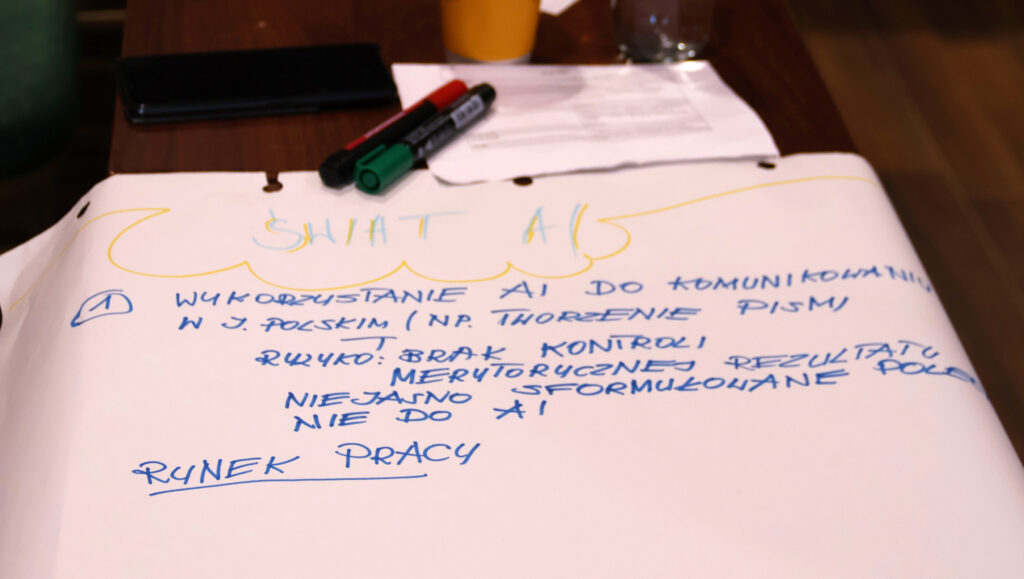 ŚWIAT AI
① WYKORZYSTANIE AI DO KOMUNIKOWANIU
W J. POLSKIM (NP. TWORZENIE PISM)
RYZYKO: BRAK KONTROLI
MERYTORYCZNEJ REZULTATU
NIEJASNO SFORMUŁOWANE POLE
NIE DO AI
RYNEK PRACY